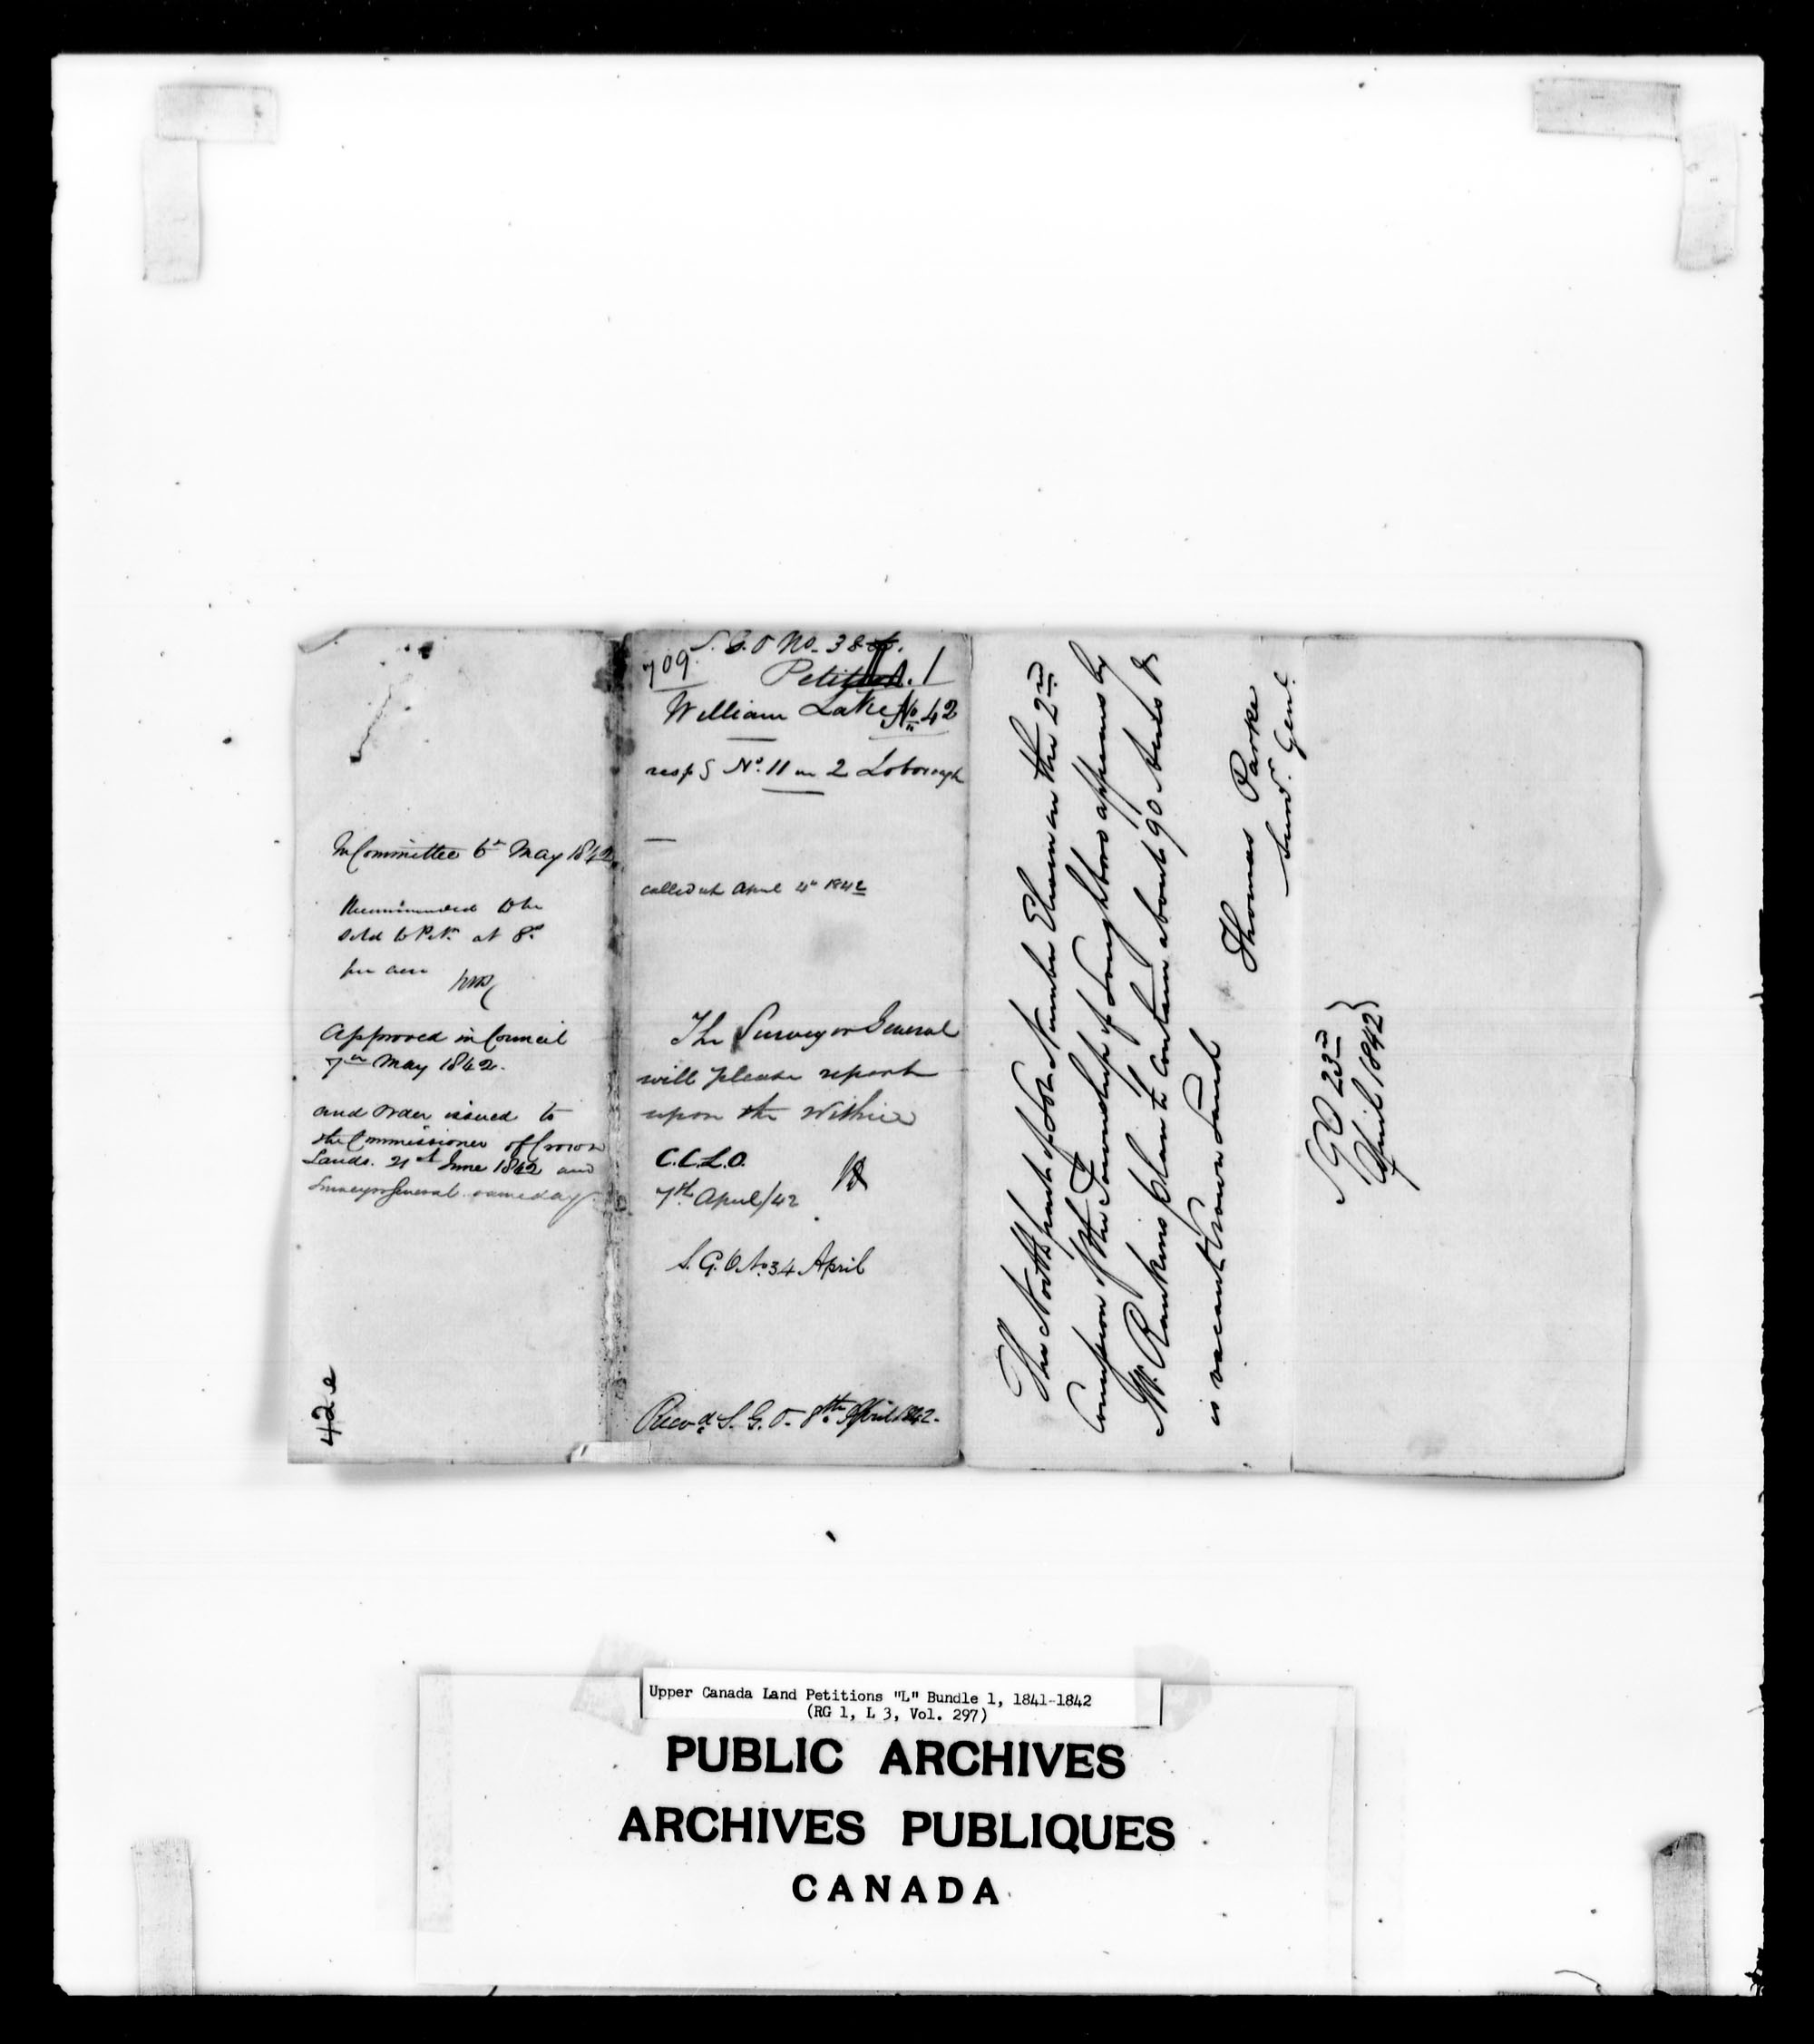 In Committee 6th May 1842
Recommended to be
sold to Petr. at 8s.
per acre
Approved in Council
7th May 1842.
and order issued to
the Commissioner of Crown
Lands. 21st June 1842 and
Surveyor General same day.
42e
S.G.O No. 38
709
Petition.
William Lake No. 42
resp g No. 11 in 2 Loborough
called up April 4th 1842
The Surveyor General
will please report
upon the within
C.C.L.O.
7th April/42
S.G.O No. 34 April
Recvd. S.G.O. 8th April 1842.
The North part of Lot Number Eleven in the 2nd
Concession of the Township of Loughboro appears by
Mr. Rankins plan to contain about 90 acres &
is vacant Crown Land
Thomas Parke
Survr. Genl.
SGO 23rd
April 1842
Upper Canada Land Petitions "L" Bundle 1, 1841-1842
(RG 1, L 3, Vol. 297)
PUBLIC ARCHIVES
ARCHIVES PUBLIQUES
CANADA